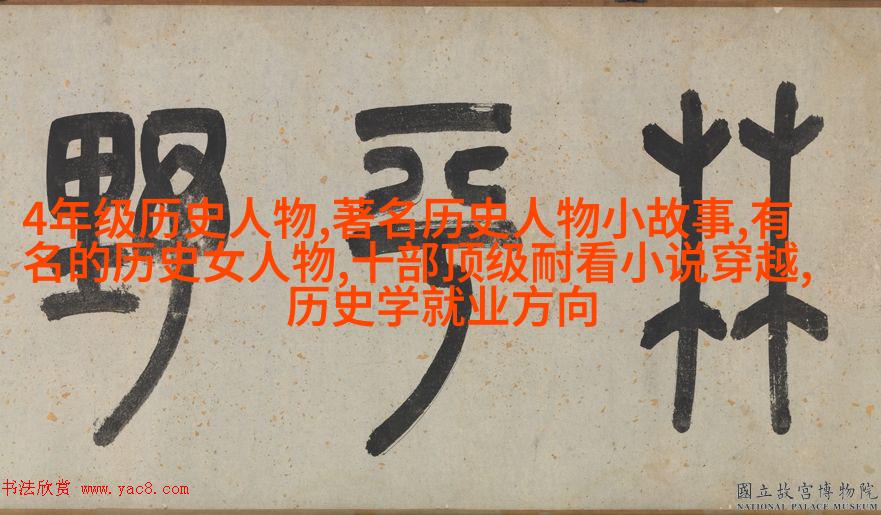 野平林
4年级历史人物,著名历史人物小故事,有
名的历史女人物,十部顶级耐看小说穿越,
历史学就业方向
书法欣赏 www.yac8.com
國立故宮博物院
NATIONAL PALACE MUSEUM